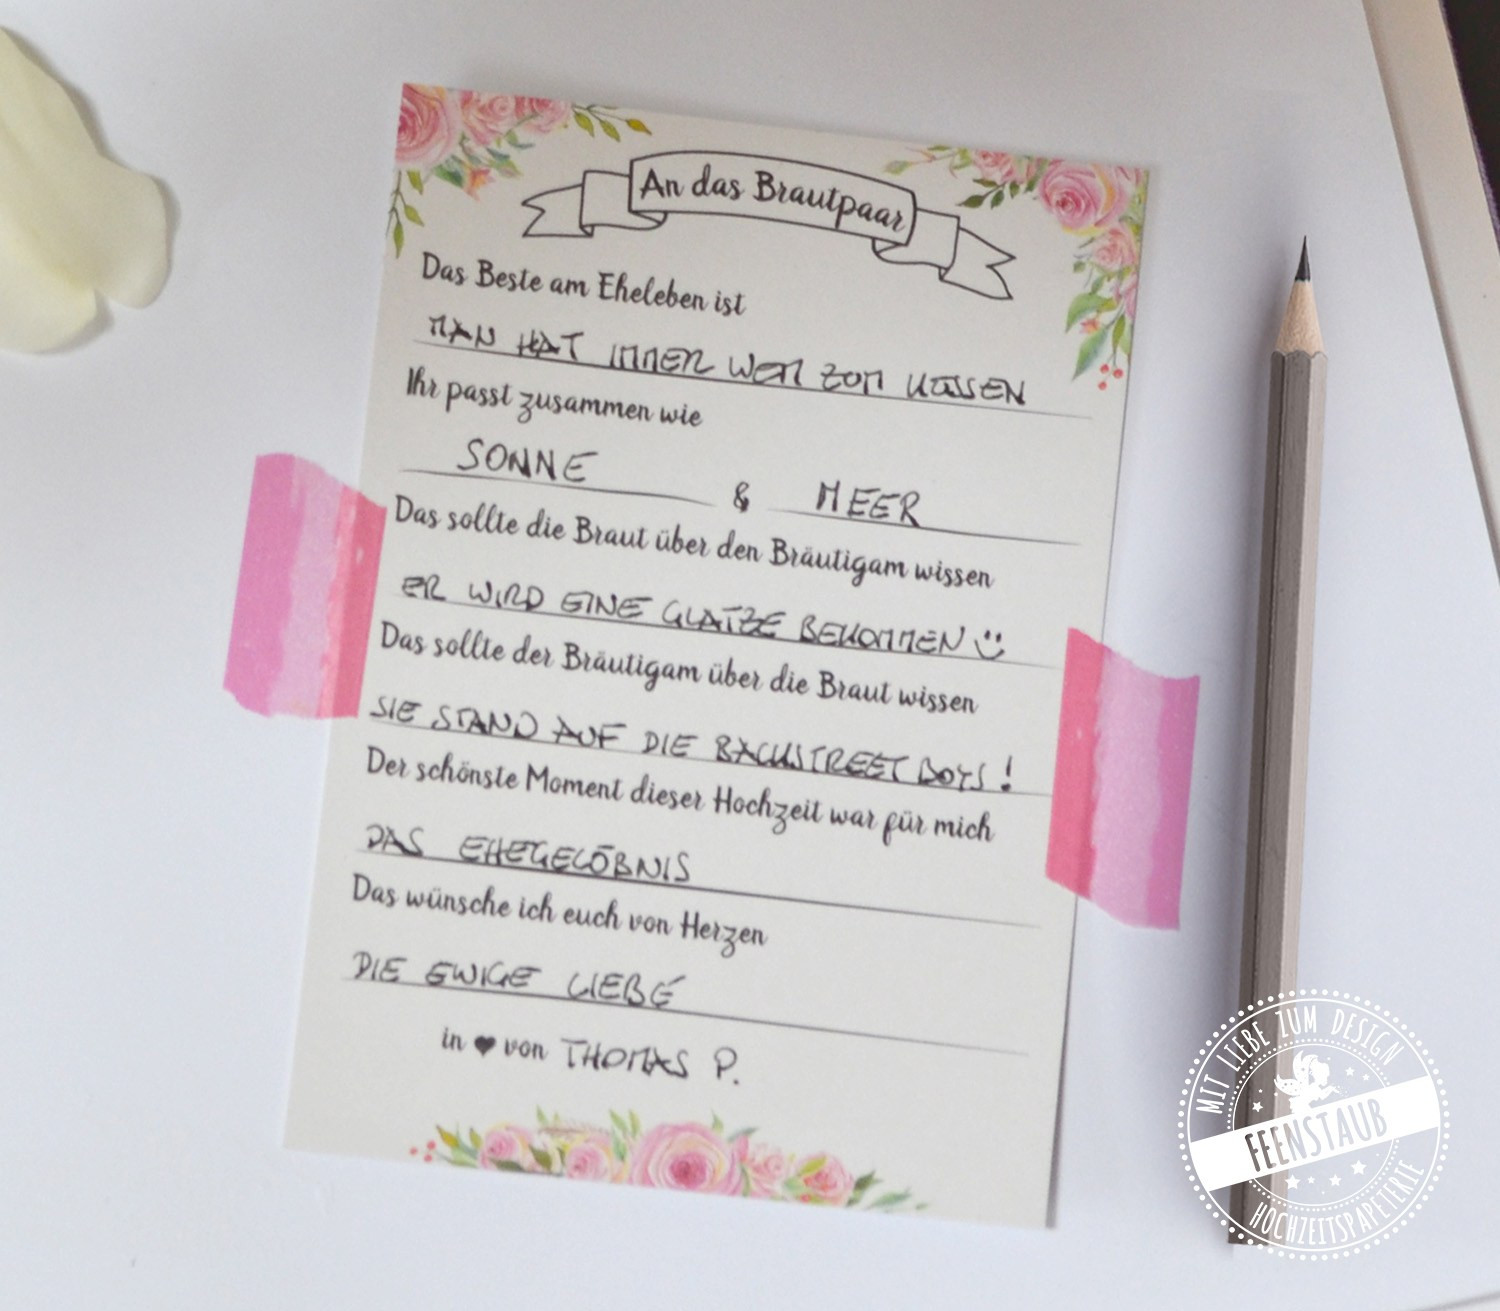 An das Brautpaar
Das Beste am Eheleben ist
MAN HAT IMMER WEN ZUM KÜSSEN
Ihr passt zusammen wie
SONNE & MEER
Das sollte die Braut über den Bräutigam wissen
ER WIRD EINE GLATZE BEKOMMEN :)
Das sollte der Bräutigam über die Braut wissen
SIE STAND AUF DIE BACKSTREET BOYS!
Der schönste Moment dieser Hochzeit war für mich
DAS EHEGELÖBNIS
Das wünsche ich euch von Herzen
DIE EWIGE LIEBE
in ♥ von THOMAS P.
MIT LIEBE ZUM DESIGN
FEENSTAUB
HOCHZEITSPAPETERIE